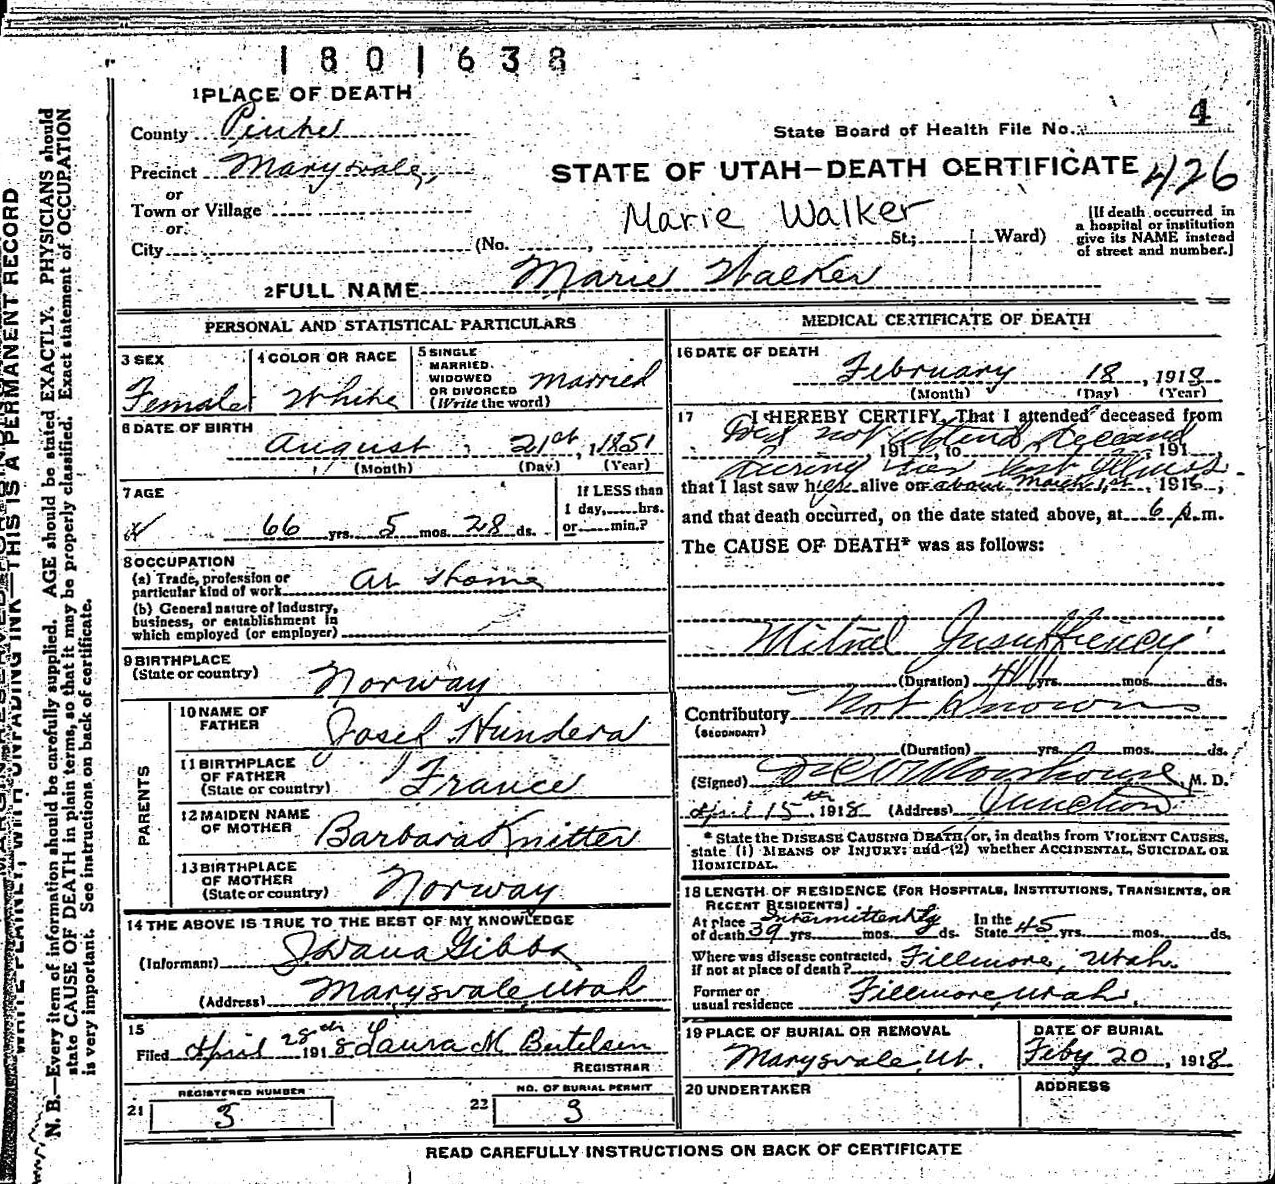 1801638
1 PLACE OF DEATH
4
County
State Board of Health File No.
Precinct Marysvale,
STATE OF UTAH—DEATH CERTIFICATE 426
or
Town or Village
Marie Walker
[If death occurred in
a hospital or institution
give its NAME instead
of street and number.]
or
City (No. , St.; Ward)
2 FULL NAME Marie Walker
PERSONAL AND STATISTICAL PARTICULARS
3 SEX Female
4 COLOR OR RACE White
5 SINGLE
MARRIED.
WIDOWED
OR DIVORCED
(Write the word) married
6 DATE OF BIRTH
August, 21st, 1851
(Month) (Day) (Year)
7 AGE
66 yrs. 5 mos. 28 ds.
If LESS than
1 day, hrs.
or min.?
8 OCCUPATION
(a) Trade, profession or
particular kind of work at home
(b) General nature of Industry,
business, or establishment in
which employed (or employer)
9 BIRTHPLACE
(State or country) Norway
PARENTS
10 NAME OF
FATHER
11 BIRTHPLACE
OF FATHER
(State or country) France
12 MAIDEN NAME
OF MOTHER Barbara Knitter
13 BIRTHPLACE
OF MOTHER
(State or country) Norway
14 THE ABOVE IS TRUE TO THE BEST OF MY KNOWLEDGE
(Informant) Gibbs
(Address) Marysvale, Utah
15
Filed April 28th 1918 Laura M
REGISTRAR
REGISTERED NUMBER
21 3
NO. OF BURIAL PERMIT
22 3
MEDICAL CERTIFICATE OF DEATH
16 DATE OF DEATH
February 18, 1918
(Month) (Day) (Year)
17 I HEREBY CERTIFY, That I attended deceased from
Did not attend deceased
, 191 , to , 191
during her last illness
that I last saw her alive on about March 1st, 1916,
and that death occurred, on the date stated above, at 6 p.m.
The CAUSE OF DEATH* was as follows:
Mitral Insufficiency
(Duration) yrs. mos. ds.
Contributory Not Known
(SECONDARY)
(Duration) yrs. mos. ds.
(Signed) M. D.
April 15th 1918 (Address) Junction
* State the DISEASE CAUSING DEATH, or, in deaths from VIOLENT CAUSES,
state (1) MEANS OF INJURY; and (2) whether ACCIDENTAL, SUICIDAL OR
HOMICIDAL.
18 LENGTH OF RESIDENCE (FOR HOSPITALS, INSTITUTIONS, TRANSIENTS, OR
RECENT RESIDENTS)
At place Intermittently In the
of death 39 yrs. mos. ds. State 45 yrs. mos. ds.
Where was disease contracted,
if not at place of death? Fillmore, Utah.
Former or
usual residence Fillmore, Utah,
19 PLACE OF BURIAL OR REMOVAL
Marysvale, Ut.
DATE OF BURIAL
Feby 20, 1918
20 UNDERTAKER
ADDRESS
READ CAREFULLY INSTRUCTIONS ON BACK OF CERTIFICATE
WRITE PLAINLY, WITH UNFADING INK—THIS IS A PERMANENT RECORD
N. B.—Every item of information should be carefully supplied. AGE should be stated EXACTLY. PHYSICIANS should
state CAUSE OF DEATH in plain terms, so that it may be properly classified. Exact statement of OCCUPATION
is very important. See instructions on back of certificate.